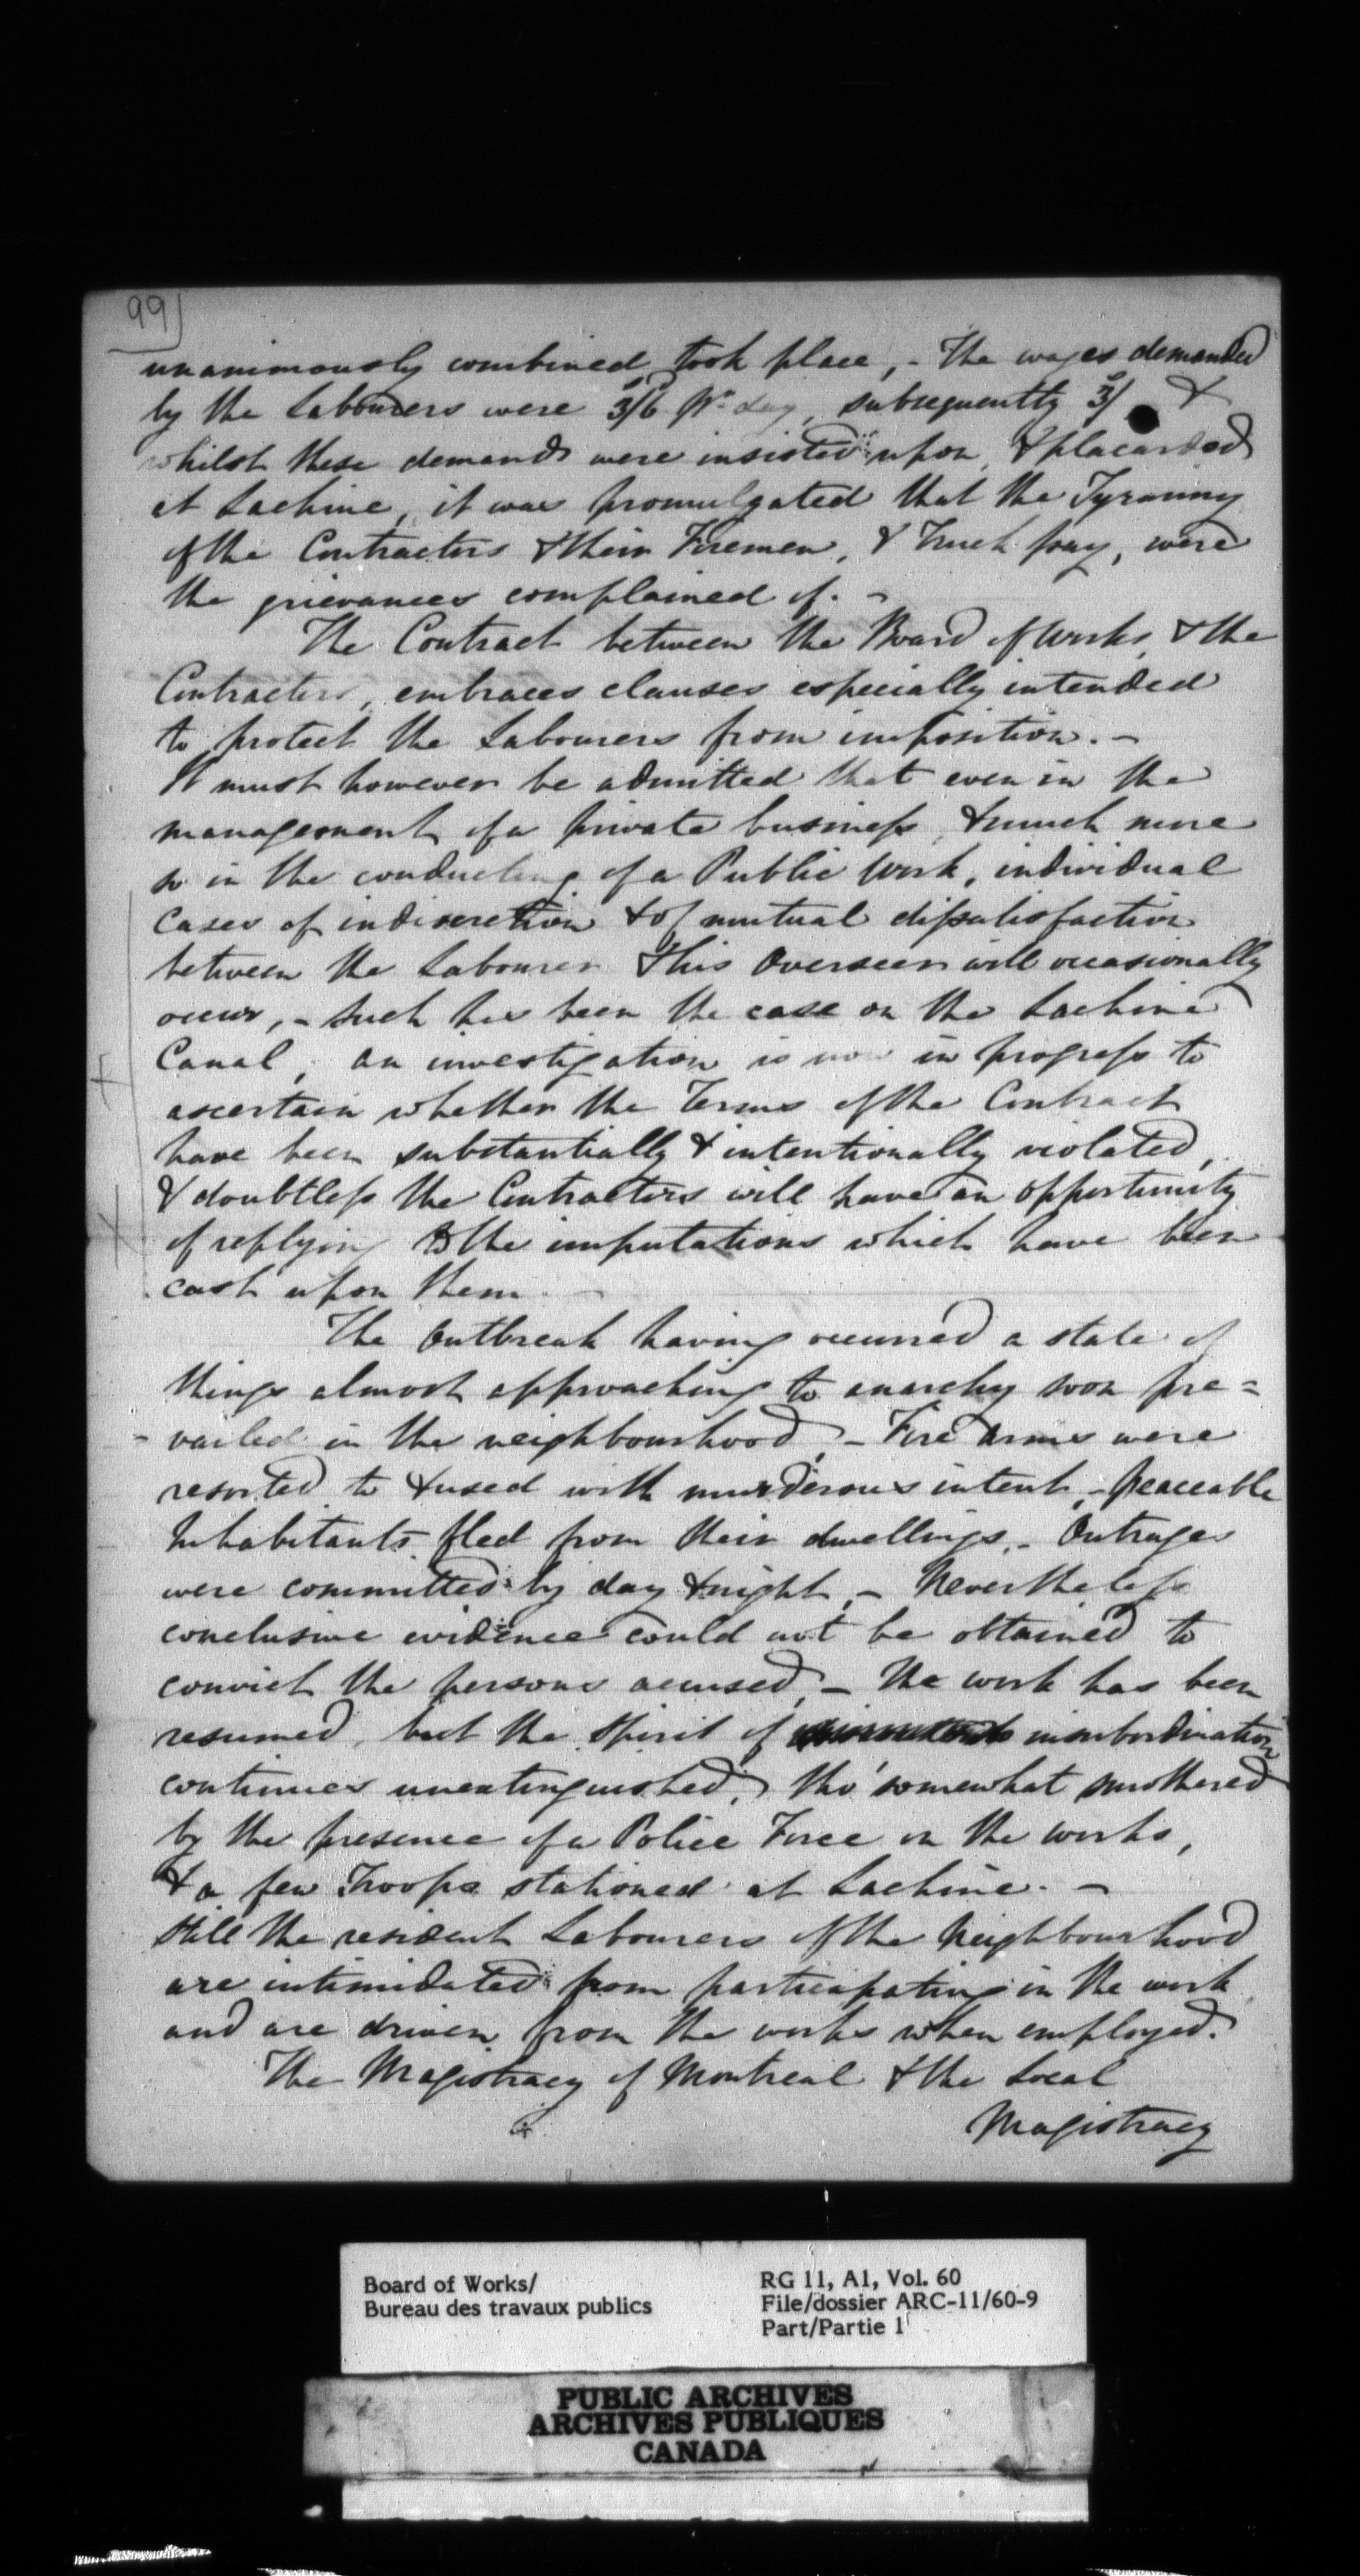 99
unanimously combined took place, - The wages demanded
by the Labourers were 3/6 pr. day, subsequently 3/ &
whilst these demands were insisted upon, & placarded
at Lachine, it was promulgated that the Tyranny
of the Contractors & their Foremen, & Truck pay, were
the grievances complained of. -
The Contract between the Board of Works, & the
Contractors, embraces clauses especially intended
to protect the Labourers from imposition. -
It must however be admitted that even in the
management of a private business, & much more
so in the conducting of a Public Work, individual
cases of indiscretion & of mutual dissatisfaction
between the Labourer & his Overseer will occasionally
occur, - such has been the case on the Lachine
Canal, an investigation is now in progress to
ascertain whether the Terms of the Contract
have been substantially & intentionally violated,
& doubtless the Contractors will have an opportunity
of replying to the imputations which have been
cast upon them. -
The Outbreak having occurred a state of
things almost approaching to anarchy soon pre=
vailed in the neighbourhood, - Fire Arms were
resorted to & used with murderous intent, - peaceable
Inhabitants fled from their dwellings, - Outrages
were committed by day & night, - Nevertheless
conclusive evidence could not be obtained to
convict the persons accused, - The work has been
resumed, but the spirit of insubordination
continues unextinguished, tho' somewhat smothered
by the presence of a Police Force on the works,
& a few Troops stationed at Lachine. -
Still the resident Labourers of the Neighbourhood
are intimidated from participating in the work
and are driven from the works when employed.
The Magistracy of Montreal & the Local
Magistracy
Board of Works/
Bureau des travaux publics
RG 11, A1, Vol. 60
File/dossier ARC-11/60-9
Part/Partie 1
PUBLIC ARCHIVES
ARCHIVES PUBLIQUES
CANADA